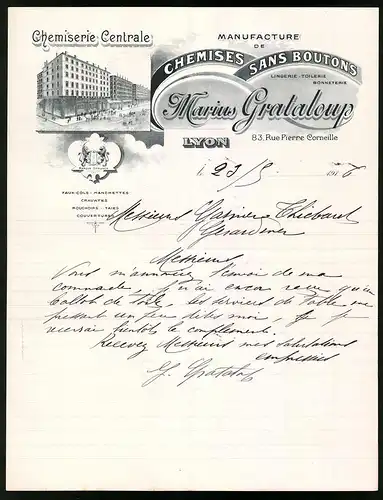 Chemiserie Centrale
MANUFACTURE
DE
CHEMISES SANS BOUTONS
LINGERIE-TOILERIE
BONNETERIE
Marius Grataloup
LYON
83, Rue Pierre Corneille
FAUX-COLS-MANCHETTES
CRAVATES
MOUCHOIRS-TAIES
COUVERTURES
L 23/3 19
Messieurs Garnier Thiébaut
Gérardmer
Messieurs
Vous m'annoncez l'envoi de ma
commande, je n'ai encore reçu qu'un
ballot de toile, les services de table me
pressent un peu dites moi, si je
recevrai bientôt le complément.
Recevez Messieurs mes salutations
empressées
Grataloup